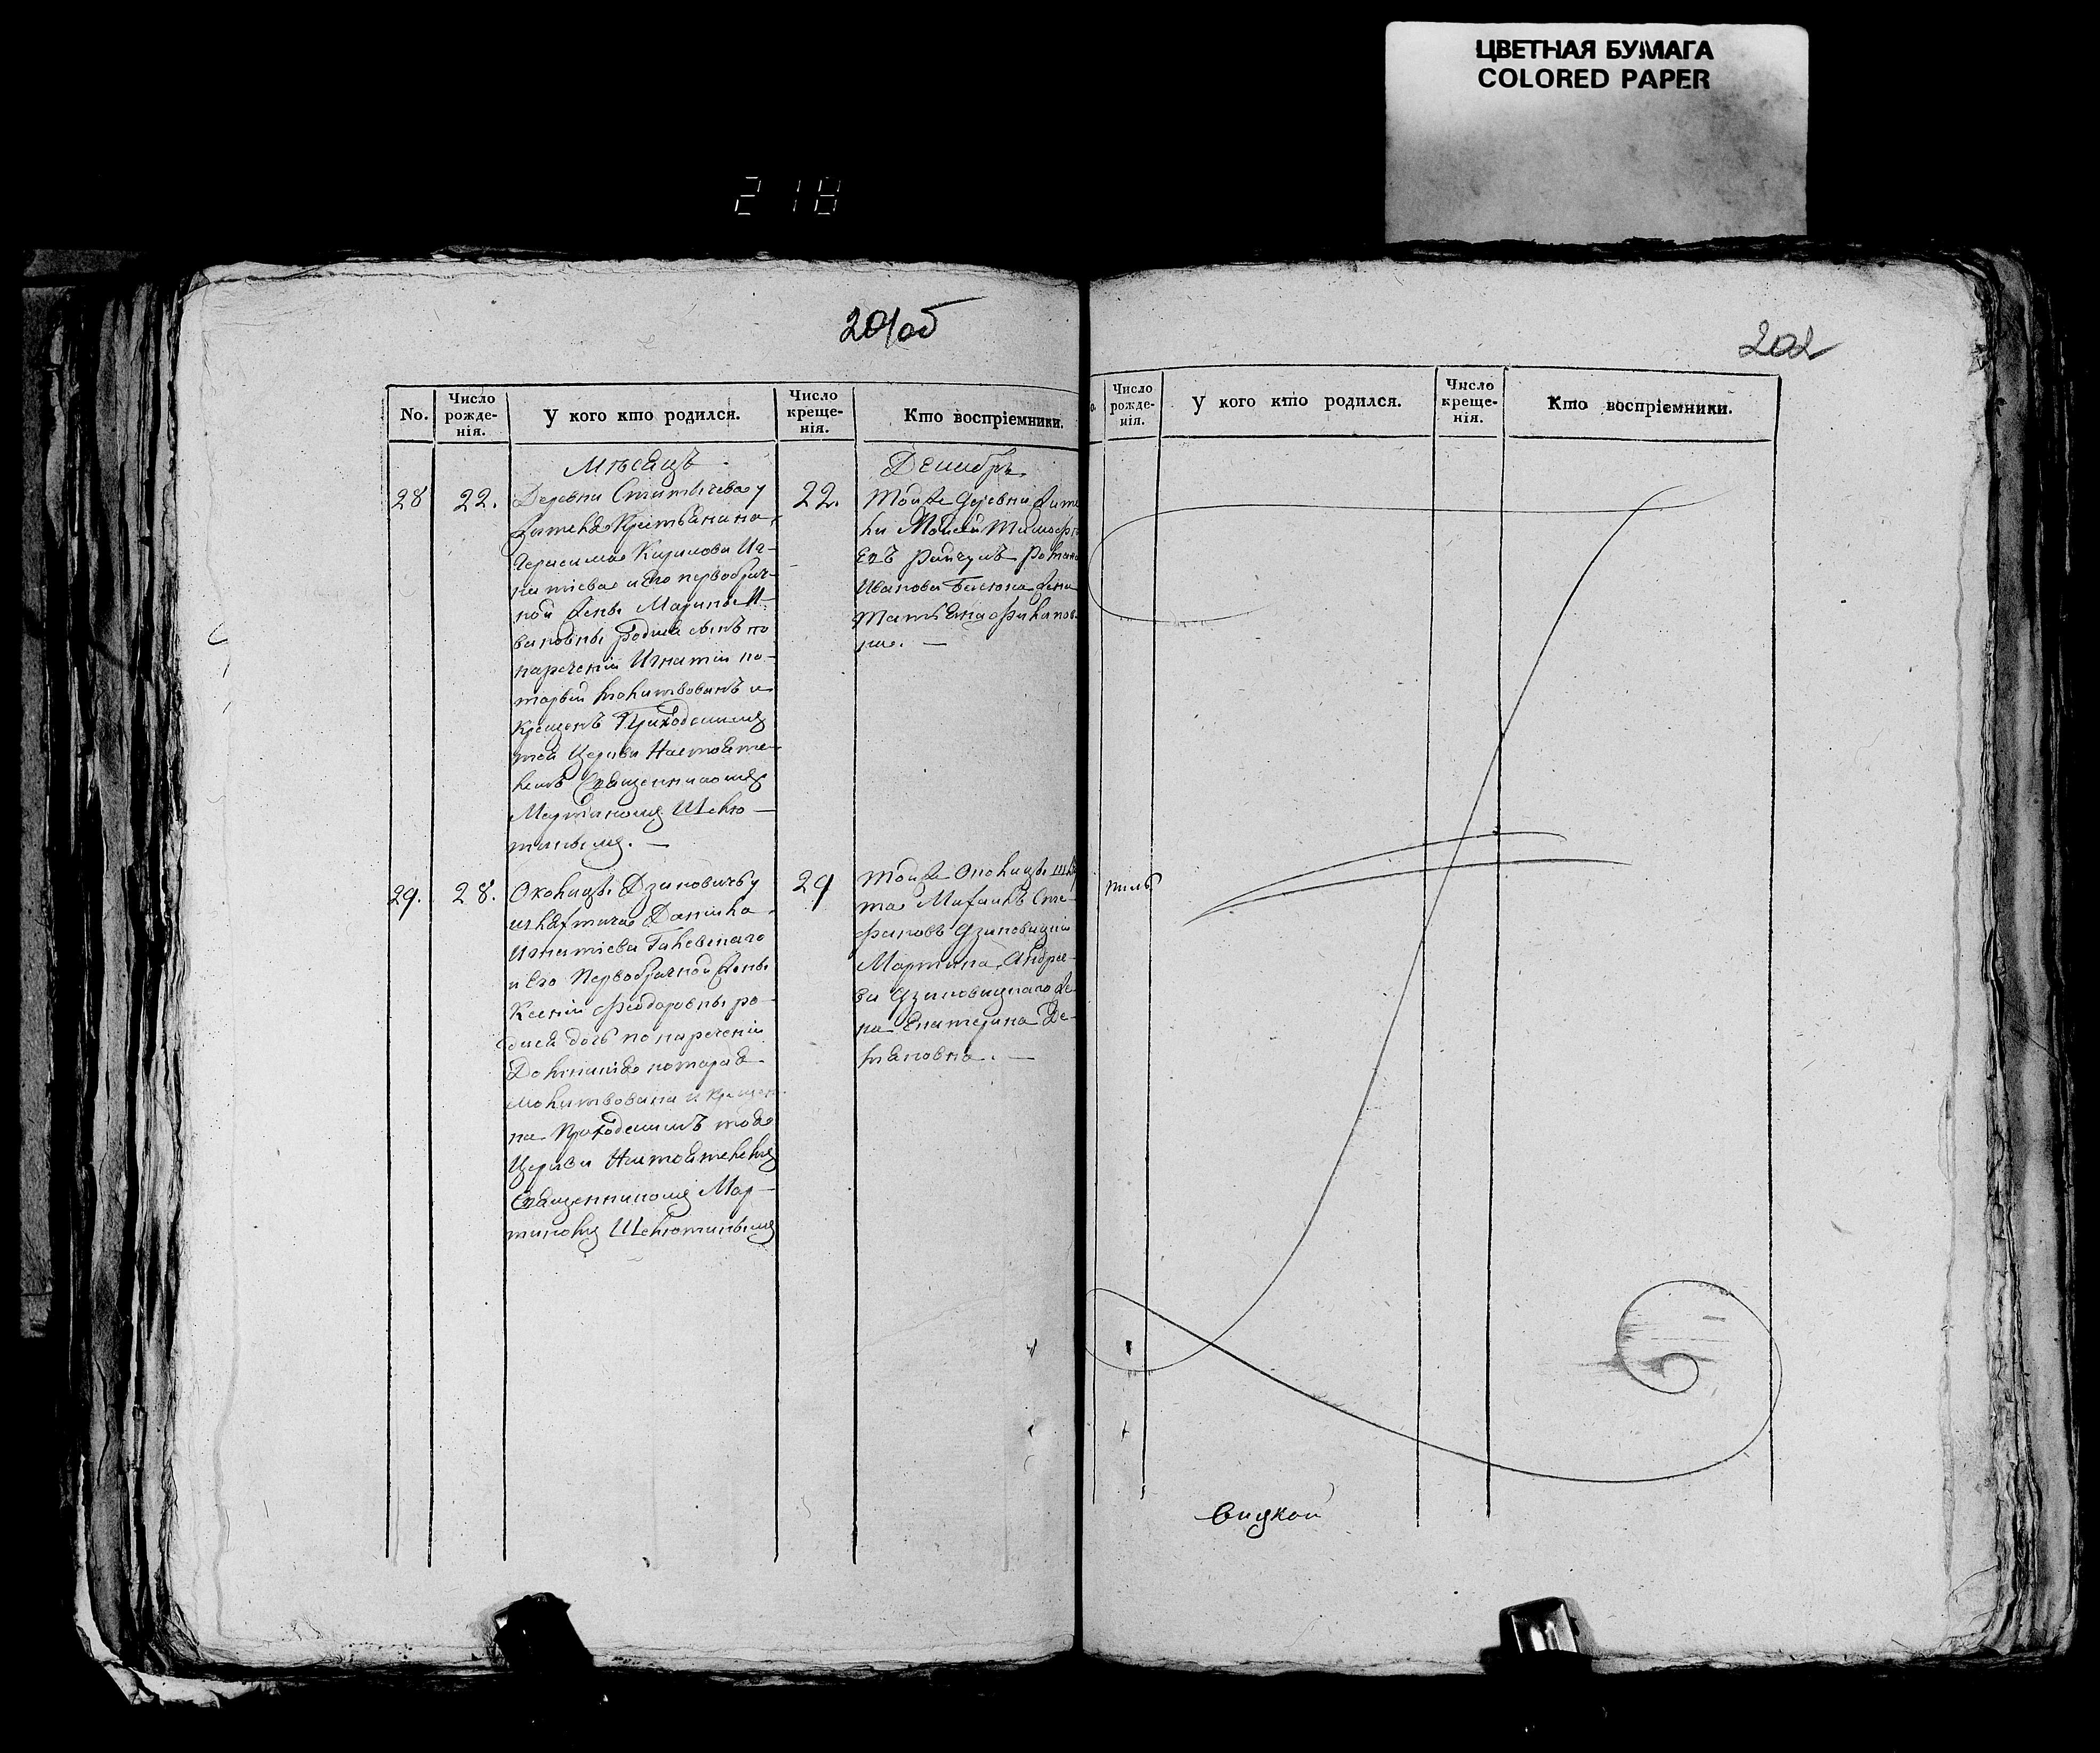 ЦВЕТНАЯ БУМАГА
COLORED PAPER
218
201об
202
No.
Число рожде-нія.
У кого кто родился.
Число креще-нія.
Кто воспріемники.
Мѣсяцъ
Декабрь
28
22.
Деревни у
жителя Крестьянина
Герасима Кирилова Иг-
натіева и его первобрач-
ной жены Марины И-
вановны родился сынъ по
нареченіи Игнатій ко-
торый молитвованъ и
крещенъ Приходскимъ
той Церкви Настояте-
лемъ Священникомъ
Мартиномъ Шелю-
тинымъ. —
22.
Тойже деревни жите
ли Мойсей Тимофѣ
евъ Романа
Иванова жена
Татьяна
на. —
29.
28.
Околицы Дзиковичь у
шляхтича Даніила
Игнатіева Галевскаго
и его Первобрачной жены
Ксеніи Феодоровны ро-
дися дочь по нареченіи
Домникія которая
молитвована и крещен
на Приходскимъ тоя
Церкви Настоятелемъ
Священникомъ Мар-
тиномъ Шелютинымъ
29
Тойже Околицы шлях
та Михаилъ Сте-
фановъ Дзиковицкій
Мартина Андрее-
ва Дзиковицкаго же-
на Екатерина Де-
мяновна. —
Число рожде-нія.
У кого кто родился.
Число креще-нія.
Кто воспріемники.